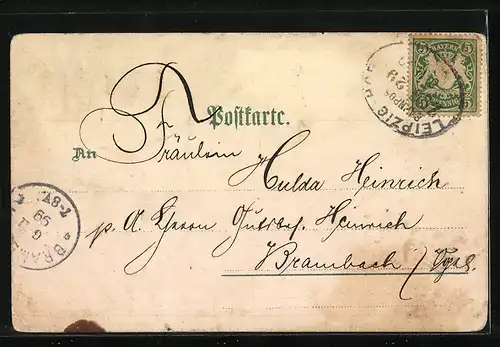 BAYERN
5 5
LEIPZIG-HOF
BAHNPOST
Postkarte.
An Fräulein
Hulda Heinrich
p. A. Herrn Gutsbes. Heinrich
Brambach / Vgtl.
BRAMB
7-8V.
99